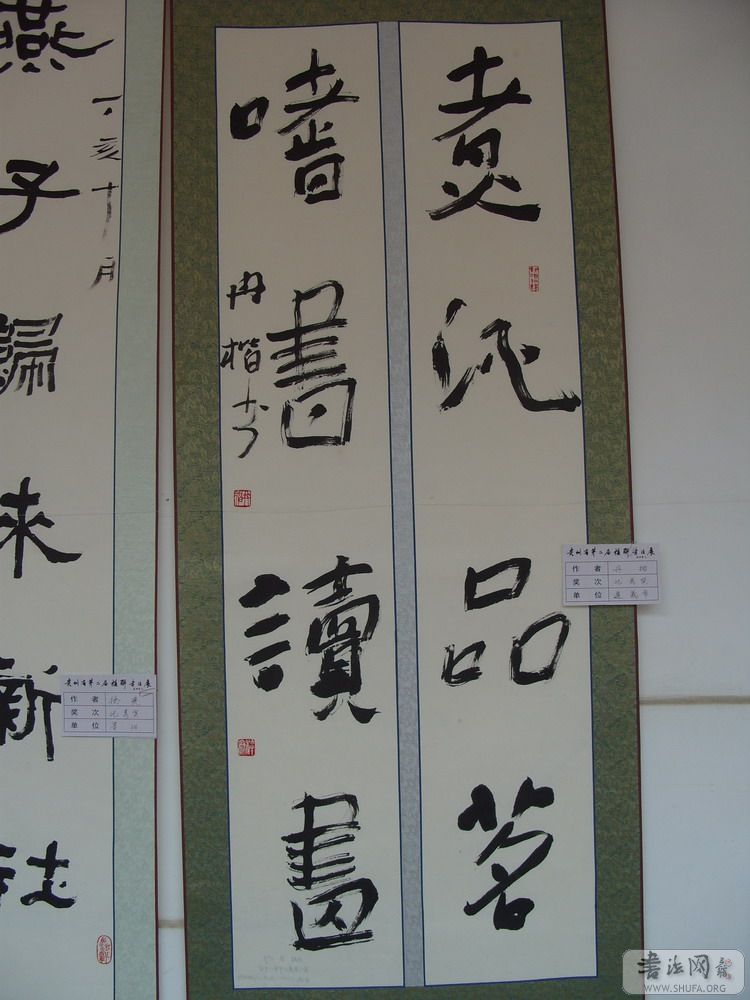 煑 品茗
嗜書讀畫
冉楷书
丁亥十月
燕子歸来新
贵州省第二届楹联书法展
作者 冉楷
奖次 优秀奖
单位 遵义市
贵州省第二届楹联书法展
作者
奖次 优秀奖
单位
書法网
WWW.SHUFA.ORG